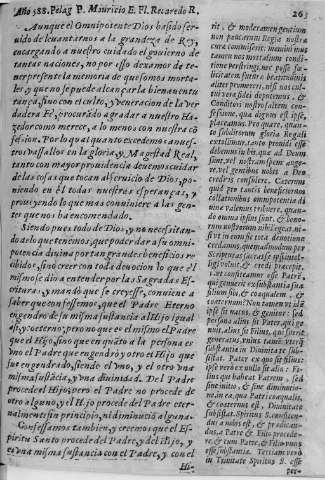 Año 588. Pelag P. Mauricio E. Fl. Recaredo R. 263
Aunque el Omnipotente Dios ha sido ser
uido de leuantarnos a la grandeza de Rey,
encargando a nuestro cuidado el gouierno de
tantas naciones, no por esso dexamos de te-
ner presente la memoria de que somos morta-
les, y que no se puede alcançar la bienauentu
rança, sino con el culto, y veneracion de la ver
dadera Fè, procurãdo agradar a nuestro Ha-
zedor como merece, a lo menos con nuestra cõ
fesion. Por lo qual quanto excedemos a nues-
tros vassallos en la gloria, y Magestad Real,
tanto con mayor prouidencia deuemos cuidar
de las cosas que tocan al seruicio de Dios, po-
niendo en èl todas nuestras esperanças, y
proueyendo lo que mas conuiniere a las gen-
tes que nos ha encomendado.
Siendo pues todo de Dios, y no necesitan-
do de lo que tenemos, que poder dar a su omni-
potencia diuina por tan grandes beneficios re
cibidos, sino creer con toda deuocion lo que èl
mismo se dio a entender por las Sagradas Es-
crituras, y mandò que se creyesse, conuiene a
saber que confessemos, que el Padre Eterno
engendro de su misma sustancia al Hijo igual
assi, y coeterno; pero no que es el mismo el Padre
que el Hijo, sino que en quãto a la persona es
vno el Padre que engendrò, y otro el Hijo que
fue engendrado, siendo el vno, y el otro vna
misma sustãcia, y vna diuinidad. Del Padre
procede el Hijo, pero el Padre no procede de
otro alguno, y el Hijo procede del Padre eter-
nalmente sin principio, ni diminuciõ alguna.
Confessamos tambien, y creemos que el Es-
piritu Santo procede del Padre, y del Hijo, y
es vna misma sustancia con el Padre, y con el
Hi-
rit, & moderamen gentium
non paucarum Regiæ nostræ
curæ commiserit: meminimus
tamen
Conditori nostro saltem con-
fessione, qua dignus est ipse,
placeamus. Pro quare, quan-
to subditorum gloria Regali
extollimur, tanto prouidi esse
debemus in his, quæ ad Deum
sunt, vel nostram spem auge-
re, vel gentibus nobis a Deo
creditis consulere. Cæterum
quid pro tantis beneficiorum
collationibus omnipotentiæ di
uinæ valemus tribuere, quan-
do omnia ipsius sunt,
ligi voluit, & credi præcepit.
Id est confiteamur esse Patrē,
qui genuerit ex substantia sua
filium sibi, & coæqualem, &
coæternum: Non tamen vt idē
ipse sit natus, & genitor: sed
persona alius sit Pater, qui ge-
nuit, alius sit Filius, qui fuerit
generatus, vnius tamē vterq;
substantia in Diuinitate sub-
sistat. Pater ex quo sit filius:
ipse vero ex nullo sit alio: Fi-
lius qui habeat Patrem, sed
sine initio, & sine diminutione
in ea, qua Patri coæqualis,
& coæternus est, Diuinitate
subsistat. Spiritus S.
dus a nobis est, & prædican-
dus, a Patre & Filio procede-
re, & cum Patre, & Filio vnius
esse substantiæ. Tertiam vero
in Trinitate Spiritus S. esse
per-